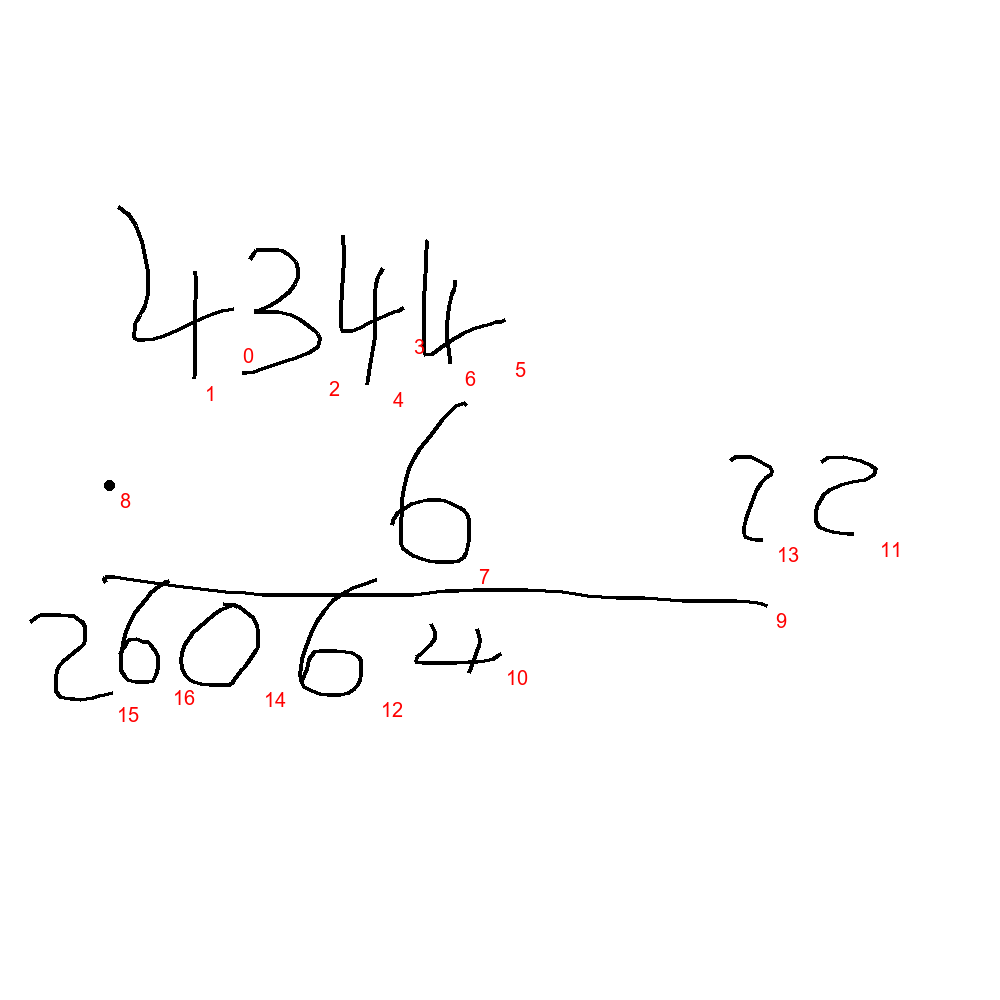 4344
0 3
1 2 4 6 5
· 6 22
8 7 13 11
9
26064
15 16 14 12 10